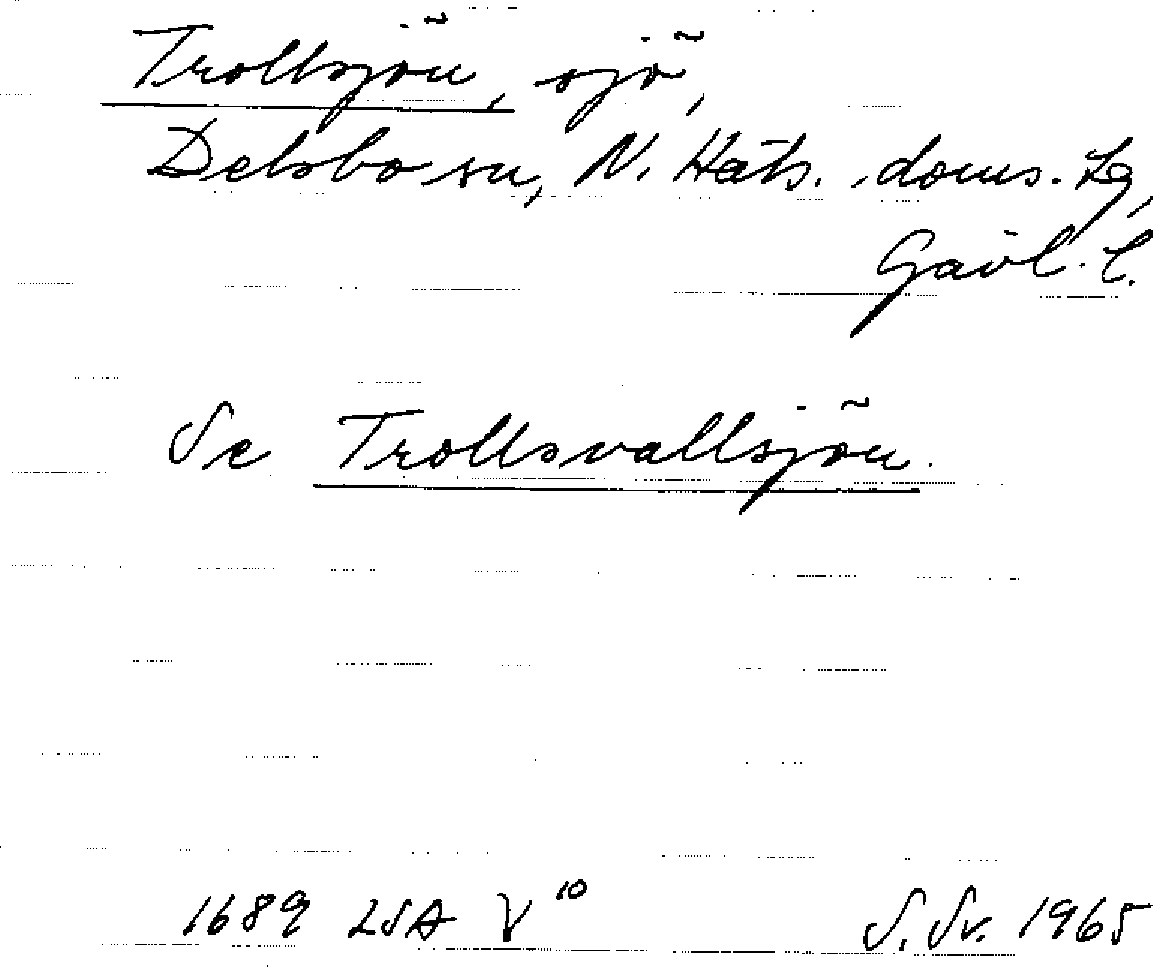 Trollsjön, sjö,
Delsbo sn, N. Häls. doms. lg,
Gävl. l.
Se Trollsvallsjön.
1689 LSA V¹⁰ S. Sv. 1965